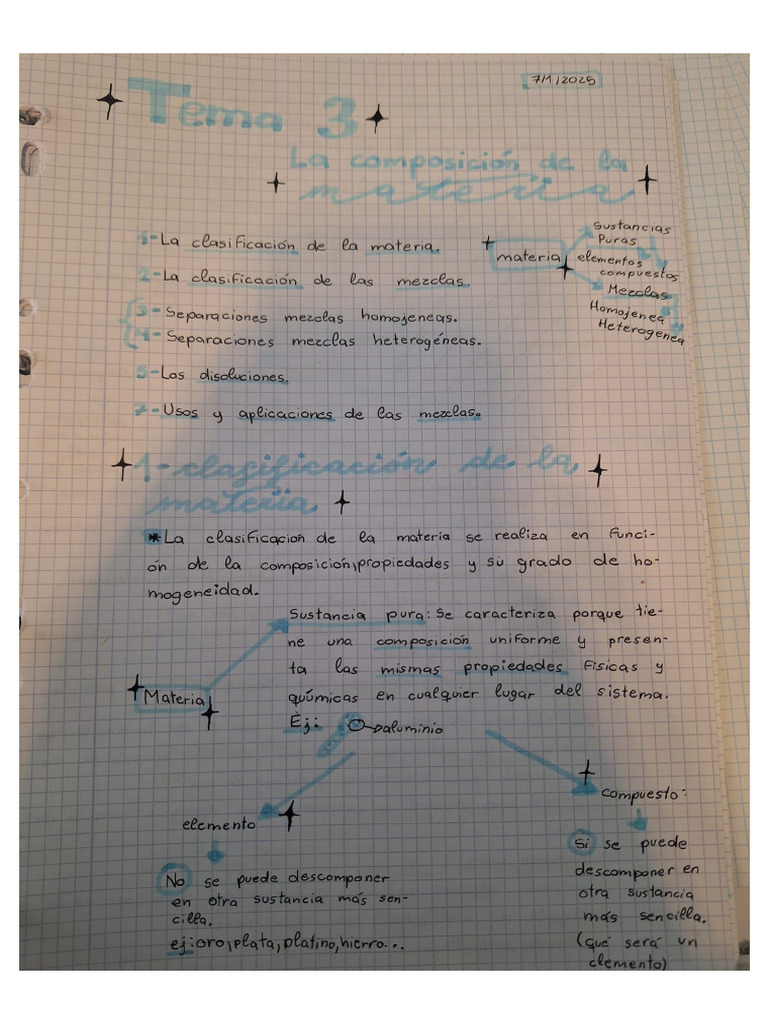 7/1/2025
Tema 3
La composición de la
materia
1-La clasificación de la materia.
2-La clasificación de las mezclas.
3-Separaciones mezclas homojeneas.
4-Separaciones mezclas heterogéneas.
5-Las disoluciones.
7-Usos y aplicaciones de las mezclas.
materia
Sustancias
Puras
elementos
compuestos
Mezclas
Homojenea
Heterogenea
1-clasificación de la
materia
*La clasificacion de la materia se realiza en funci-
ón de la composición, propiedades y su grado de ho-
mogeneidad.
Materia
Sustancia pura: Se caracteriza porque tie-
ne una composición uniforme y presen-
ta las mismas propiedades Fisicas y
químicas en cualquier lugar del sistema.
Ej:
aluminio
elemento
No se puede descomponer
en otra sustancia más sen-
cilla.
ej:oro, plata, platino, hierro...
compuesto:
Si se puede
descomponer en
otra sustancia
más sencilla.
(qué será un
elemento)